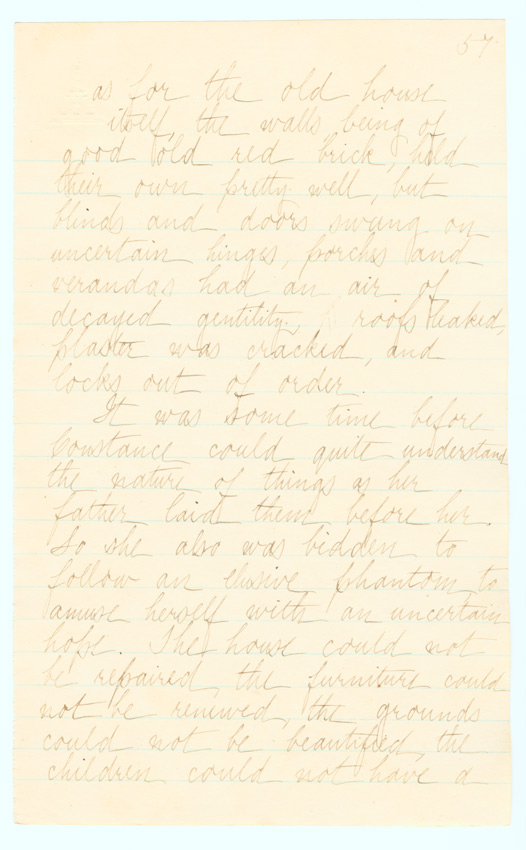 57
as for the old house
itself, the walls being of
good old red brick, held
their own pretty well, but
blinds and doors swung on
uncertain hinges, porches and
verandas had an air of
decayed gentility, roofs leaked,
plaster was cracked, and
locks out of order.
It was some time before
Constance could quite understand
the nature of things as her
father laid them before her.
So she also was bidden to
follow an elusive phantom to
amuse herself with an uncertain
hope. The house could not
be repaired, the furniture could
not be renewed, the grounds
could not be beautified, the
children could not have a